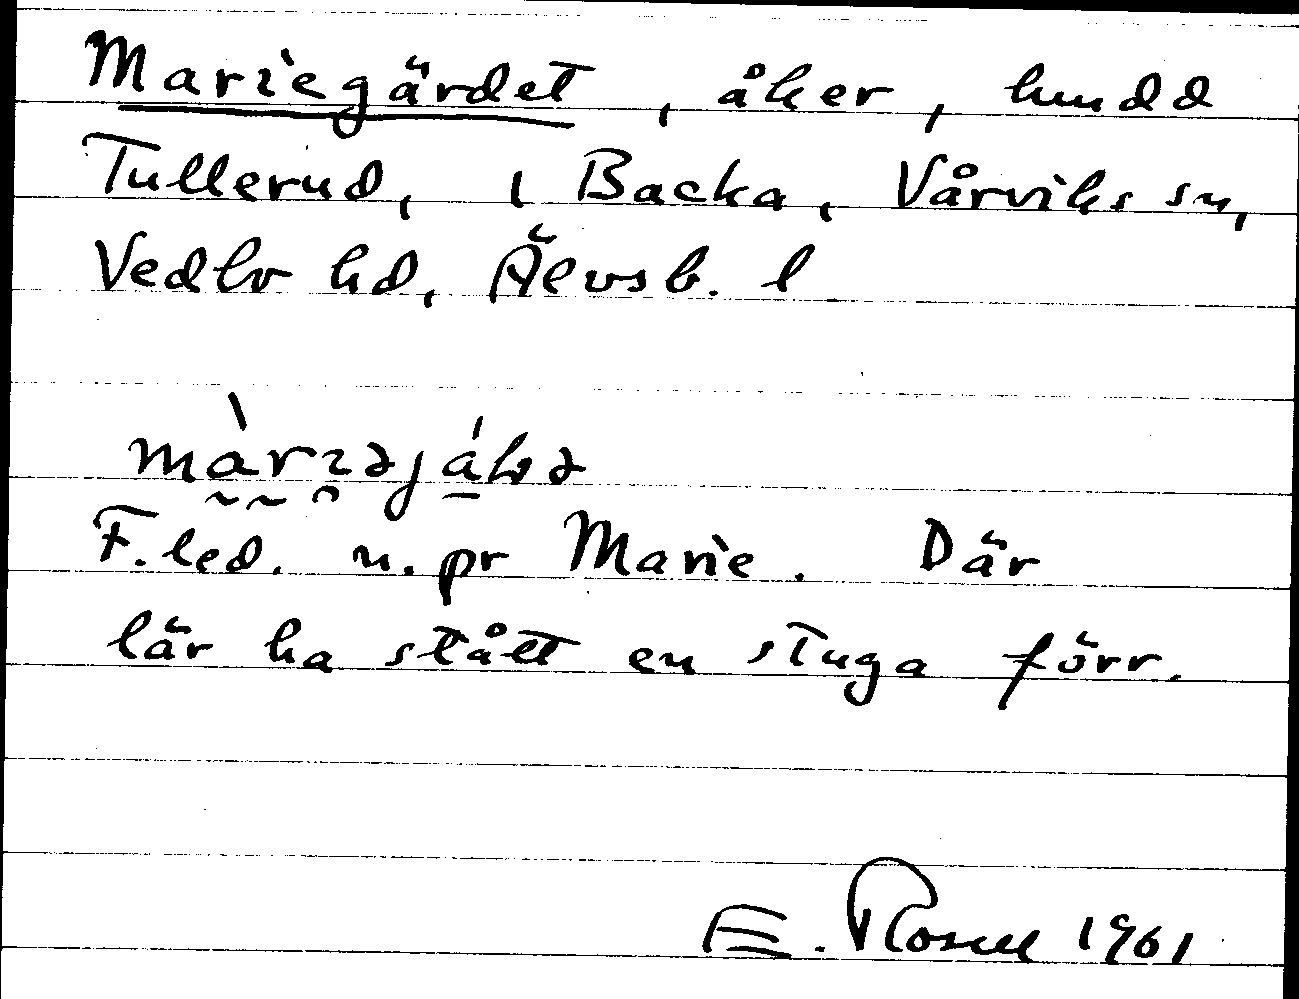 Mariegärdet, åker, hmdd
Tullerud, i Backa, Vårviks sn,
Vedbo hd, Älvsb. l
F. led. n. pr Marie. Där
lär ha stått en stuga förr.
E. Rosell 1961